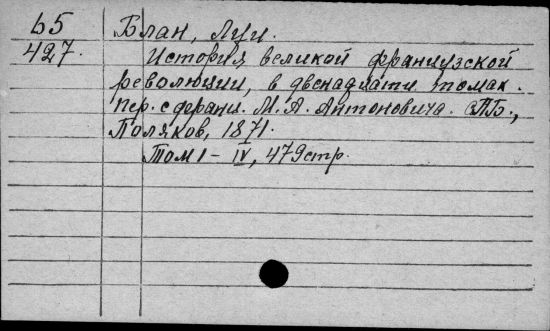 Б5 Блан, Луи.
427. История великой французской
революции, в двенадцати томах.
Пер. с франц. М. А. Антоновича. СПБ.,
Поляков, 1871.
Том I - IV, 479 стр.